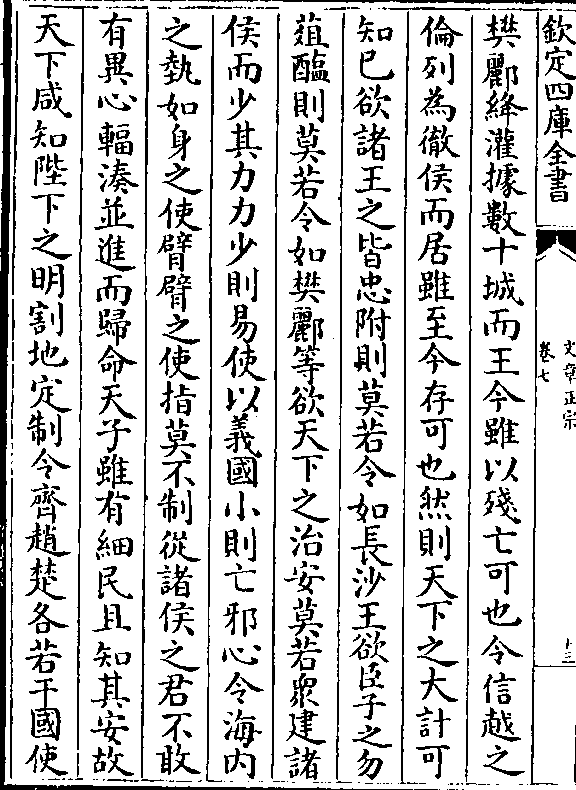 欽定四庫全書
文章正宗
卷七
十三
樊酈絳灌據數十城而王今雖以殘亡可也令信越之
倫列為徹侯而居雖至今存可也然則天下之大計可
知已欲諸王之皆忠附則莫若令如長沙王欲臣子之勿
葅醢則莫若令如樊酈等欲天下之治安莫若衆建諸
侯而少其力力少則易使以義國小則亡邪心令海内
之埶如身之使臂臂之使指莫不制從諸侯之君不敢
有異心輻湊並進而歸命天子雖有細民且知其安故
天下咸知陛下之明割地定制令齊趙楚各若干國使